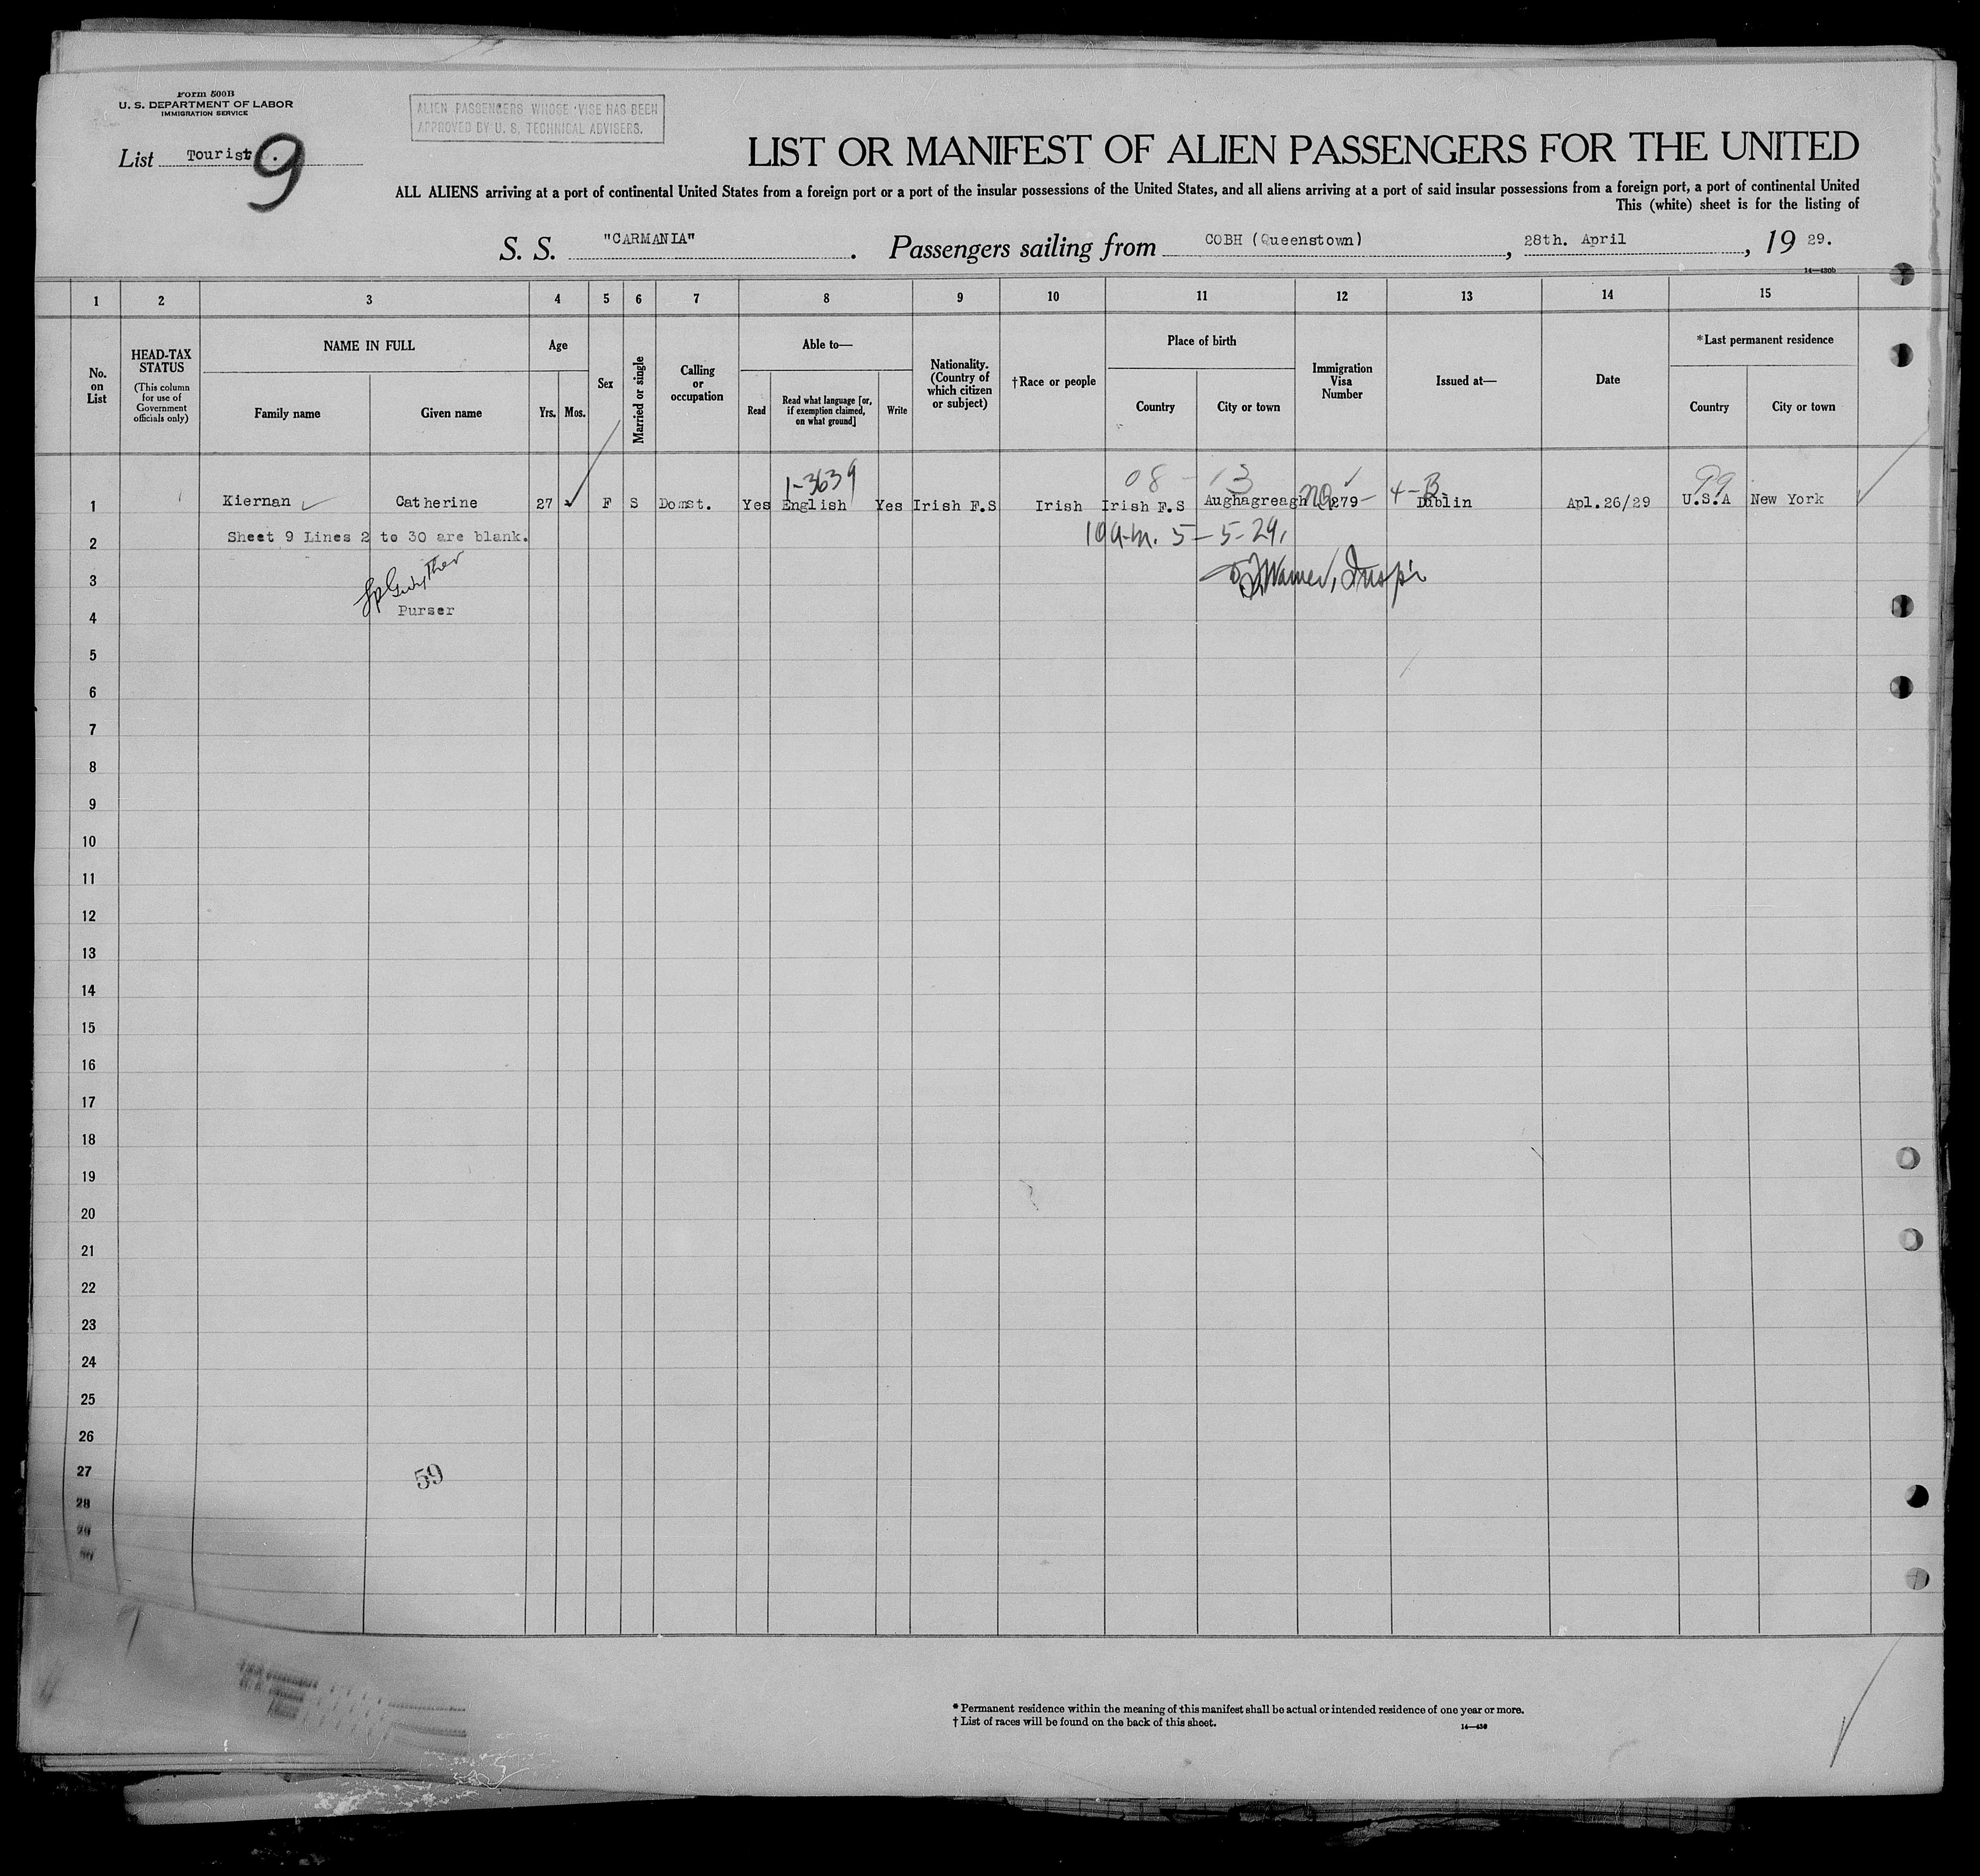 Form 500B
U. S. DEPARTMENT OF LABOR
IMMIGRATION SERVICE
ALIEN PASSENGERS WHOSE VISE HAS BEEN
APPROVED BY U. S. TECHNICAL ADVISERS.
List Tourist. 9
LIST OR MANIFEST OF ALIEN PASSENGERS FOR THE UNITED
ALL ALIENS arriving at a port of continental United States from a foreign port or a port of the insular possessions of the United States, and all aliens arriving at a port of said insular possessions from a foreign port, a port of continental United
This (white) sheet is for the listing of
S. S. "CARMANIA" . Passengers sailing from COBH (Queenstown) , 28th. April , 19 29.
14—430b
1 2 3 4 5 6 7 8 9 10 11 12 13 14 15
No. on List
HEAD-TAX STATUS
(This column for use of Government officials only)
NAME IN FULL
Family name Given name
Age
Yrs. Mos.
Sex
Married or single
Calling or occupation
Able to—
Read
Read what language [or, if exemption claimed, on what ground]
Write
Nationality. (Country of which citizen or subject)
†Race or people
Place of birth
Country City or town
Immigration Visa Number
Issued at—
Date
*Last permanent residence
Country City or town
1-3639 08 - 13 4-B 99
1 Kiernan Catherine 27 F S Domst. Yes English Yes Irish F.S Irish Irish F.S Aughagreagh 279 Dublin Apl.26/29 U.S.A New York
2 Sheet 9 Lines 2 to 30 are blank. 10 a.m. 5-5-29.
3
Purser
4
5
6
7
8
9
10
11
12
13
14
15
16
17
18
19
20
21
22
23
24
25
26
27
59
28
29
30
* Permanent residence within the meaning of this manifest shall be actual or intended residence of one year or more.
† List of races will be found on the back of this sheet.
14—430